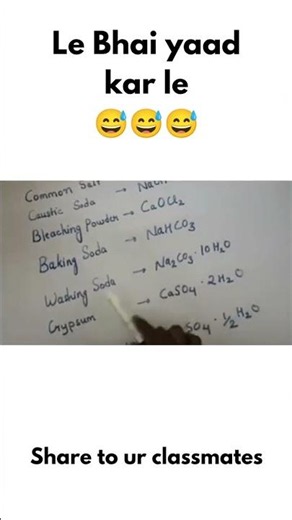 Le Bhai yaad
kar le
😅😅😅
Common Salt →
Caustic Soda → NaOH
Bleaching Powder → CaOCl₂
Baking Soda → NaHCO₃
Washing Soda → Na₂CO₃·10H₂O
Gypsum → CaSO₄·2H₂O
SO₄·½H₂O
Share to ur classmates